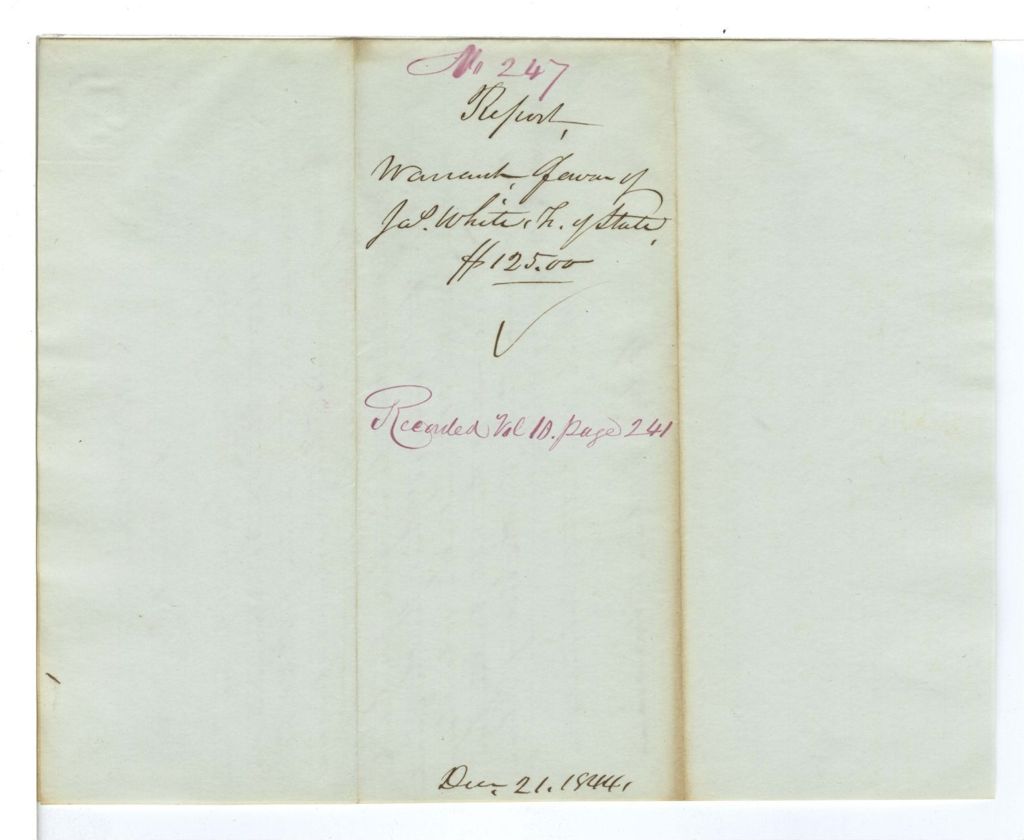 No 247
Report,
Warrant, favor of
Jas. White, of State,
$125.00
Recorded Vol 10. page 241
Dec. 21. 1844.